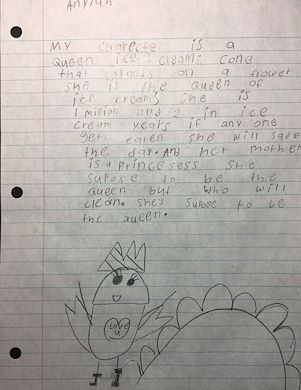 MY Charecter is a
Queen ice cream cone
that stands on a flower
she is the Queen of
ice cream, she is
1 million and 2 in ice
cream years if any one
gets eaten she will save
the day. And her mother
is a princesess she
supose to be the
queen but who will
clean. she's supose to be
the queen.
love
u